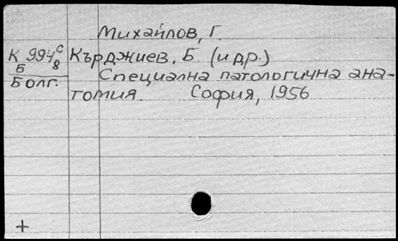 Михайлов, Г.
К 994 с/8 Кърджиев, Б. (и др.)
Б
Болг. Специална патологична ана-
томия. София, 1956
+